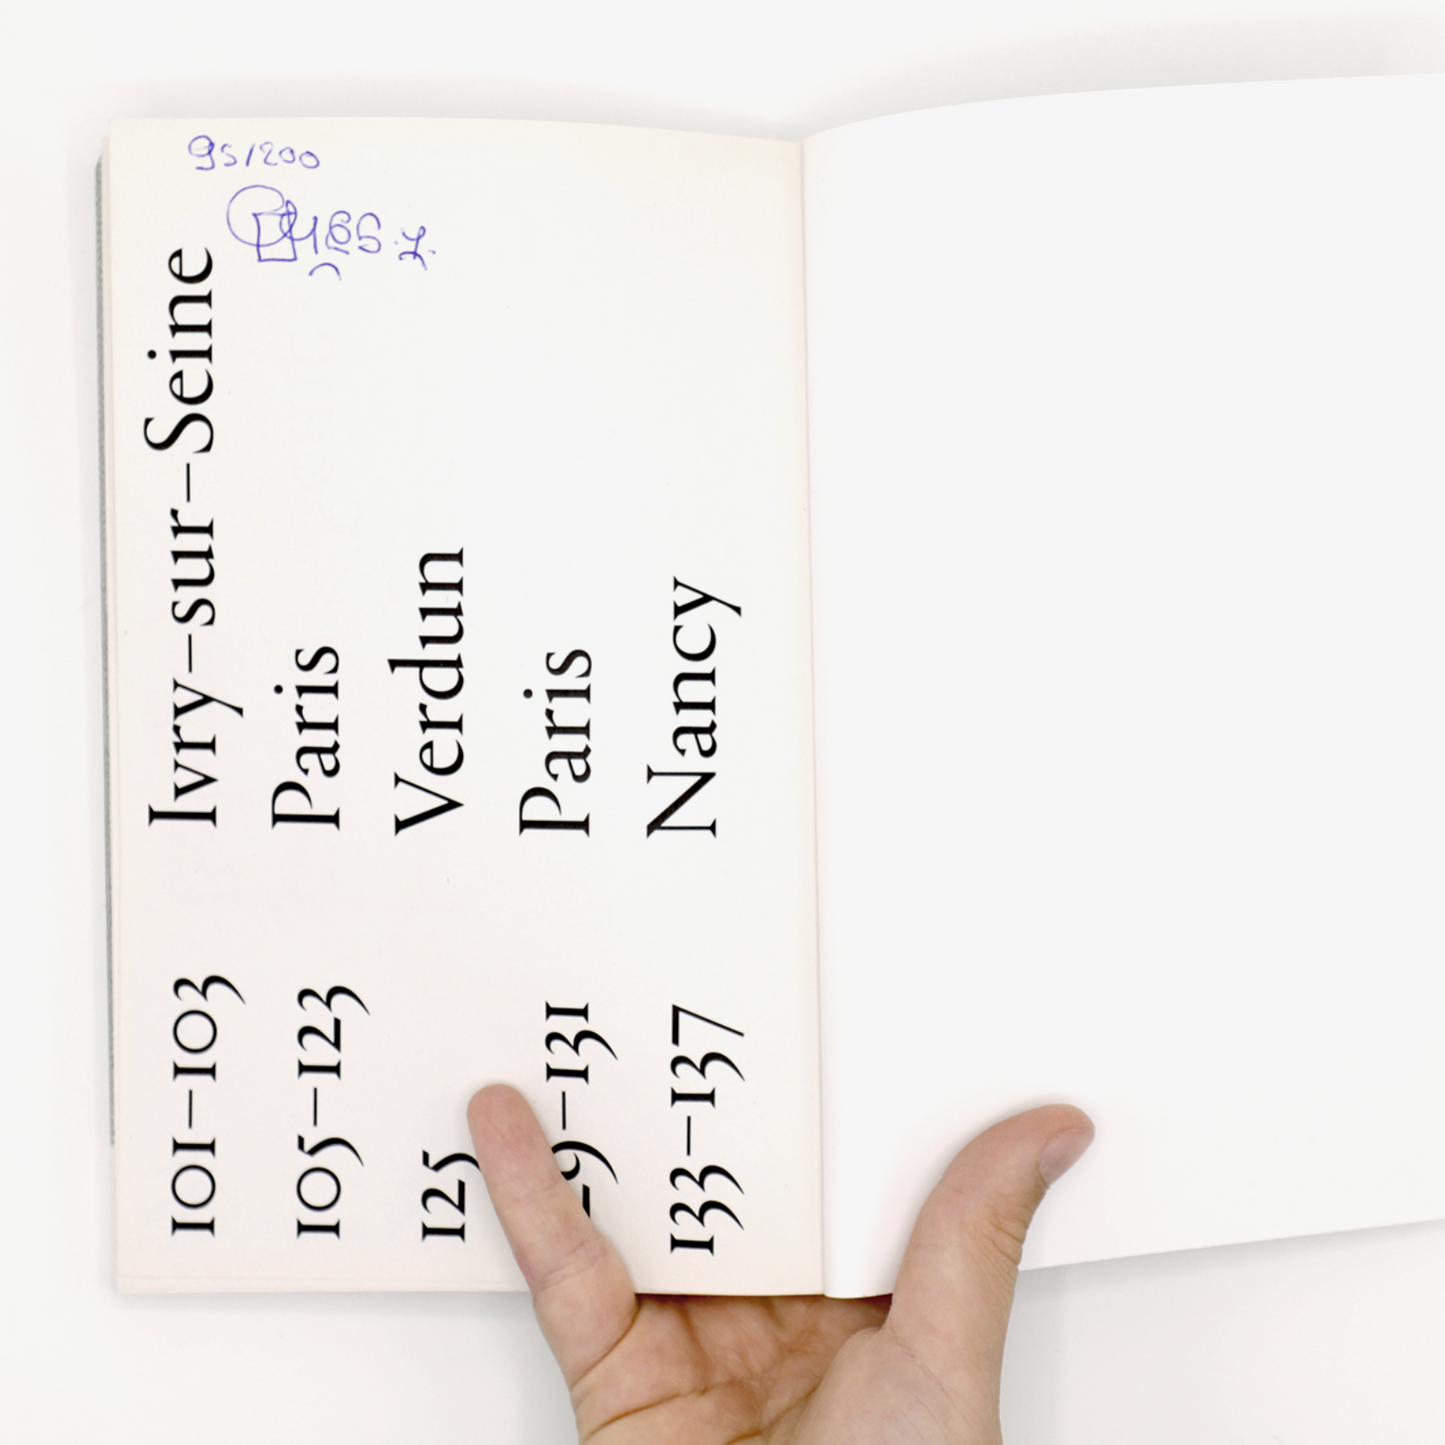 95/200
101–103 Ivry–sur–Seine
105–123 Paris
125 Verdun
29–131 Paris
133–137 Nancy